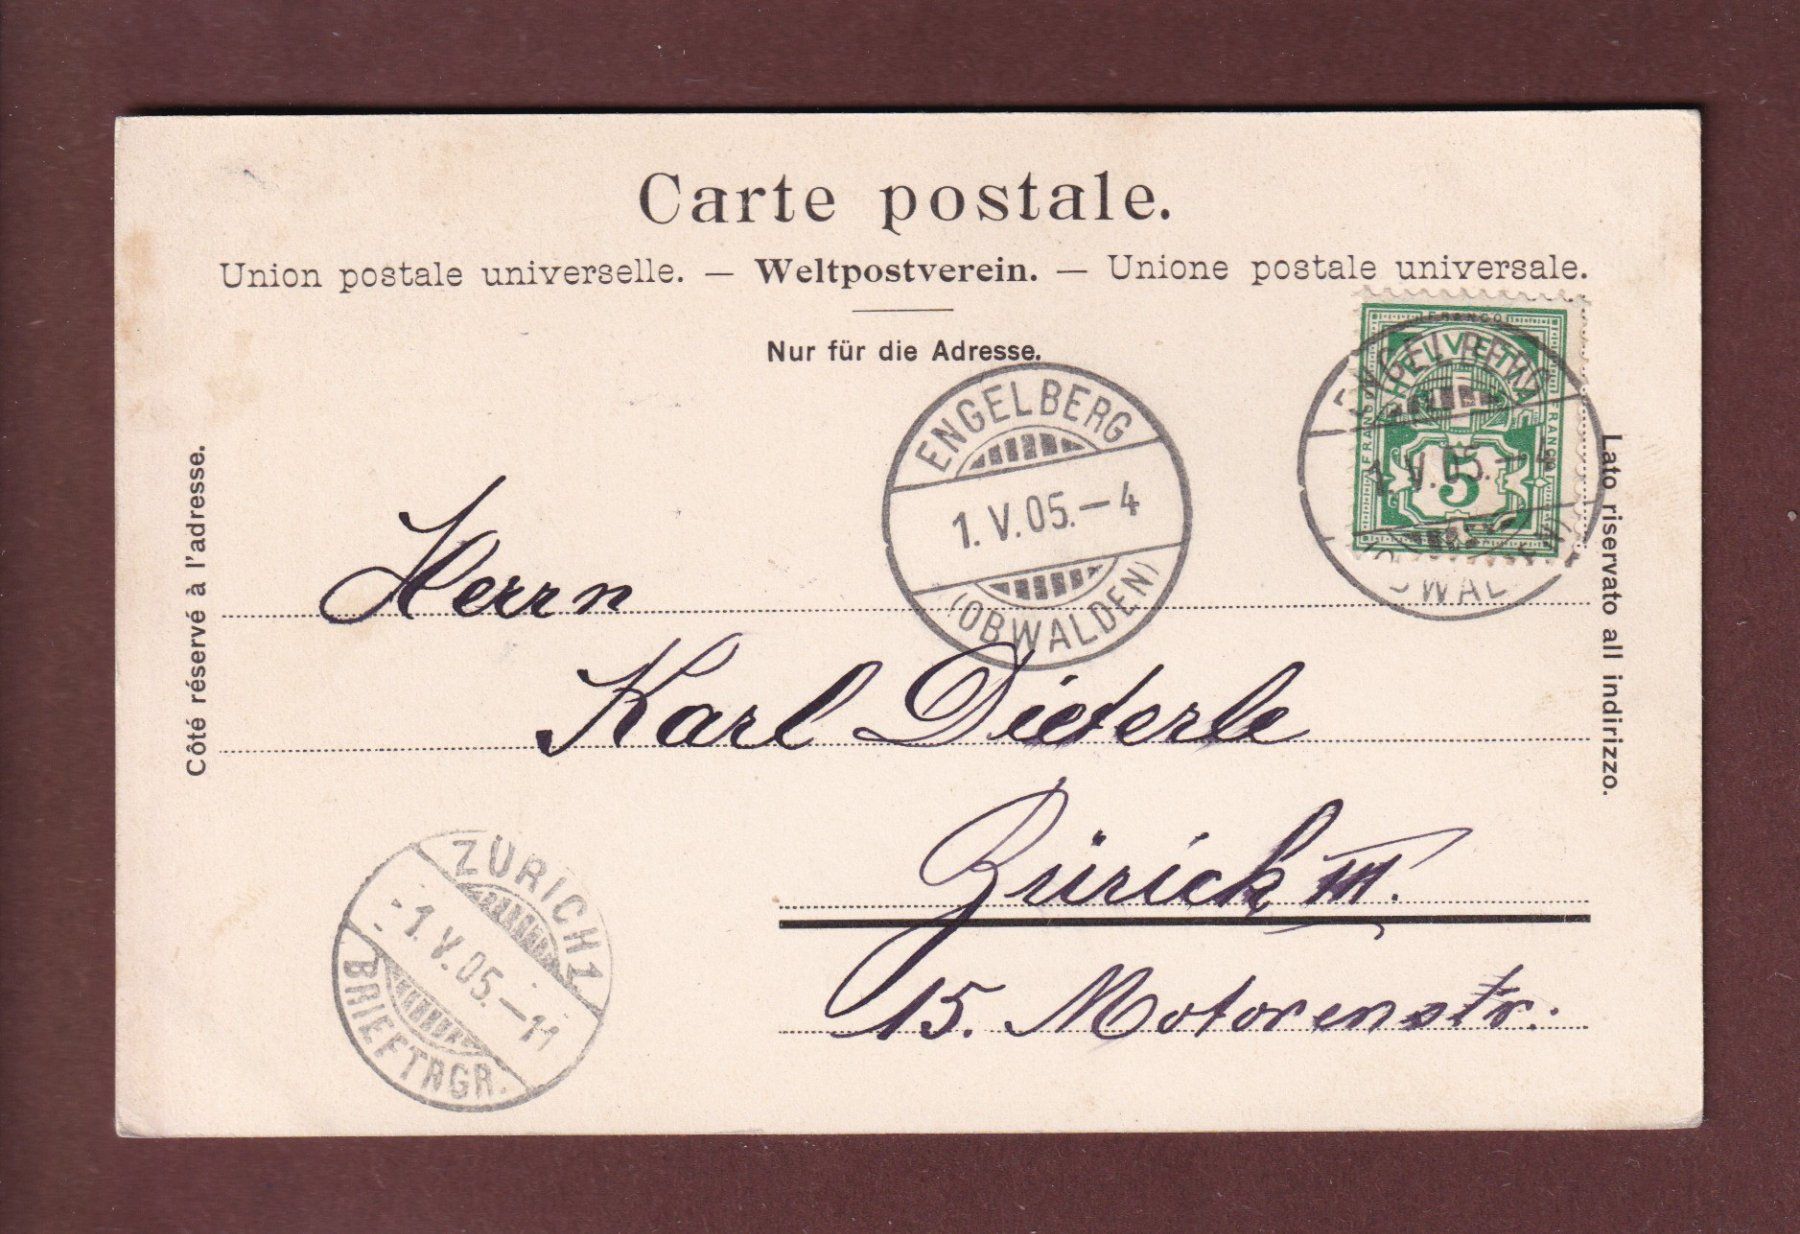 Carte postale.
Union postale universelle. — Weltpostverein. — Unione postale universale.
Nur für die Adresse.
Côté réservé à l'adresse.
Lato riservato all indirizzo.
FRANCO
HELVETIA
FRANCO
FRANCO
5
ENGELBERG
1.V.05.–4
(OBWALDEN)
ENGELBERG
1.V.05.–4
(OBWALDEN)
Herrn
Karl Dieterle
Zürich III.
15. Motorenstr.
ZÜRICH 1
1.V.05.–11
BRIEFTRGR.